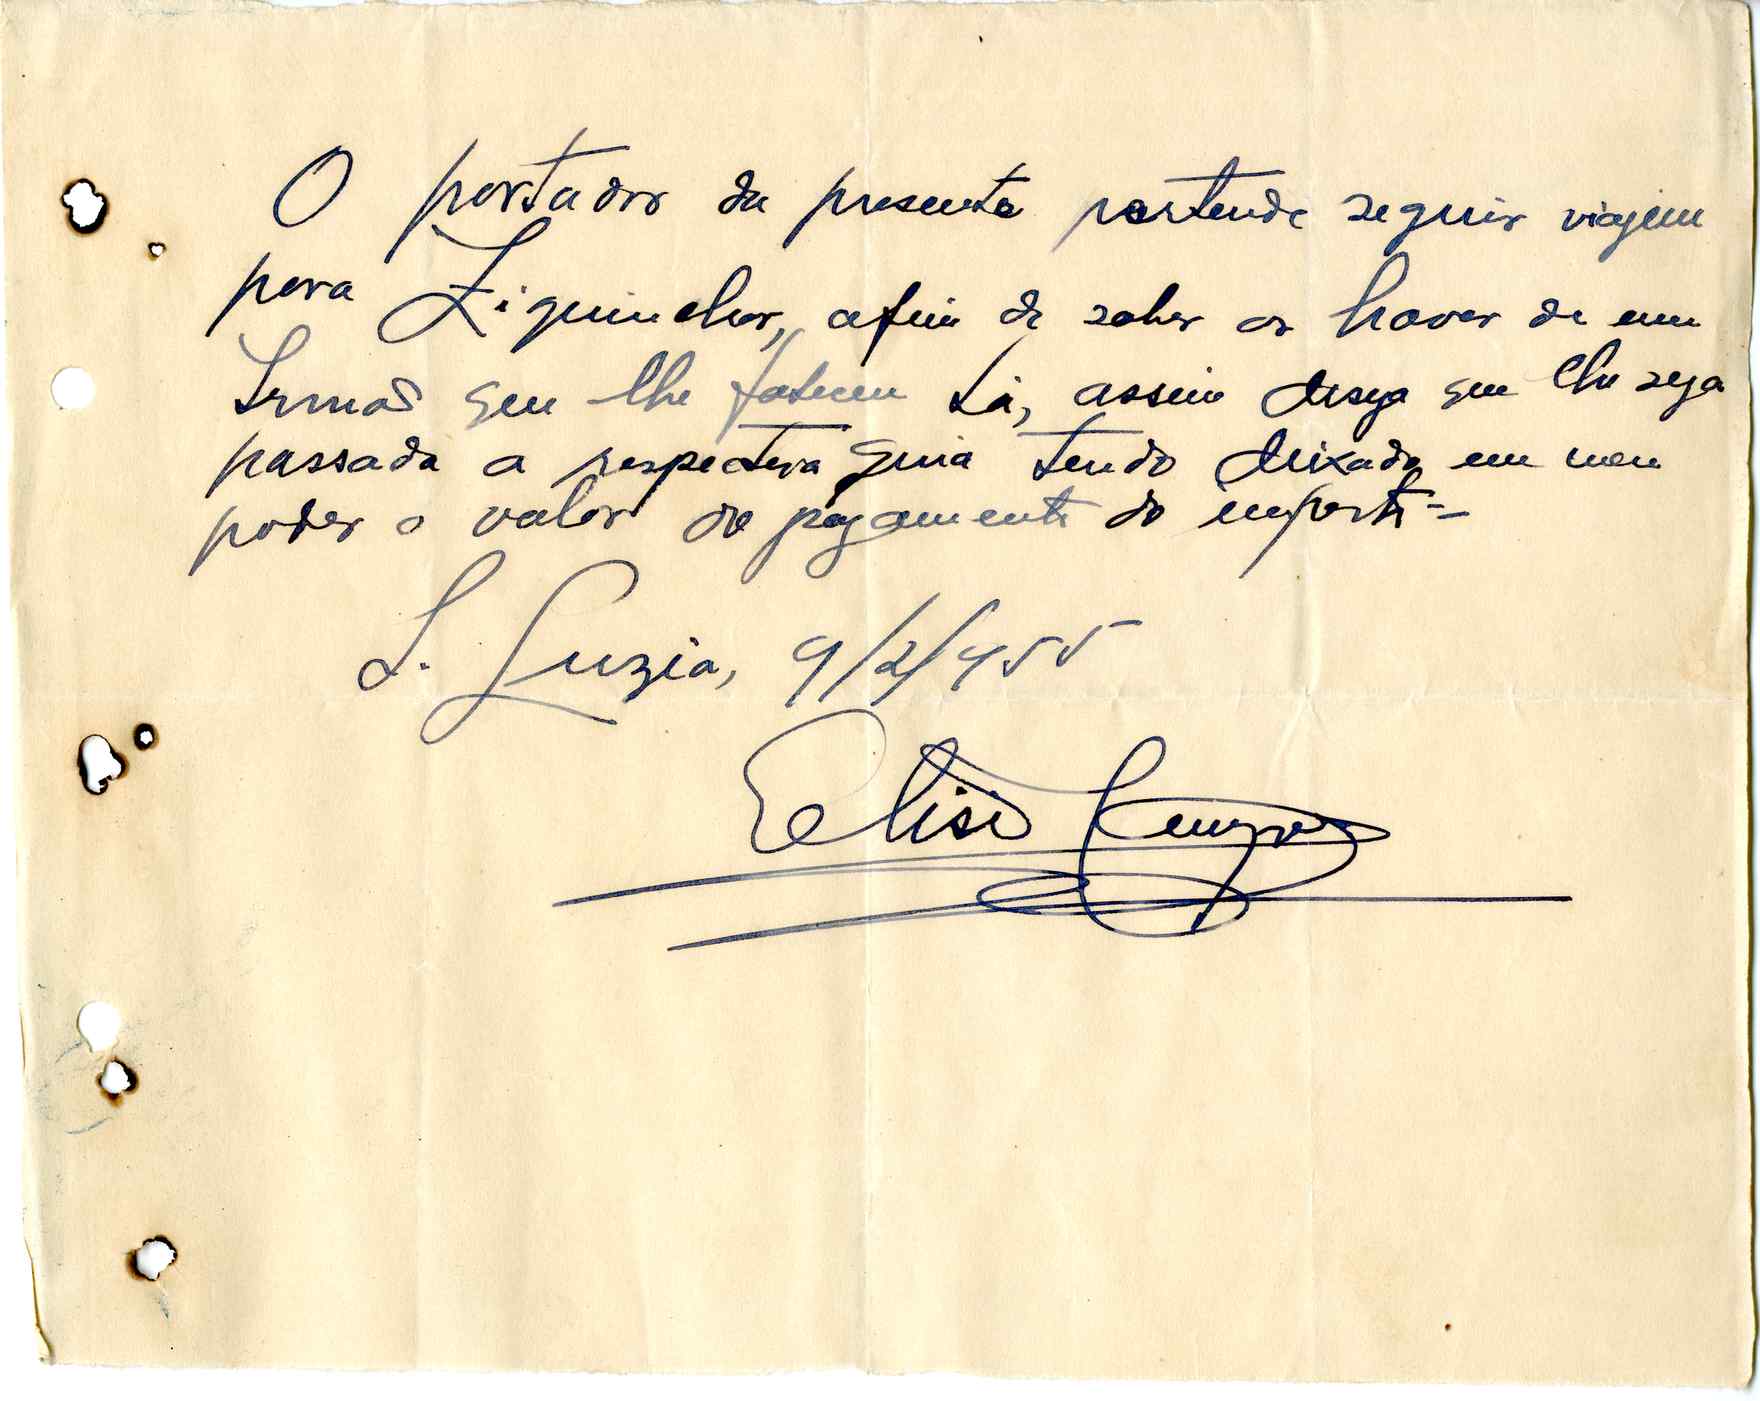 O portador da presente pertende seguir viajem
para Ziguinchor, afim de saber os haver de um
Irmão que lhe faleceu lá, assim deseja que lhe seja
passada a respectiva guia tendo deixado em meu
poder o valor do pagamento do imposto=
S. Luzia, 9/2/955
Elisio